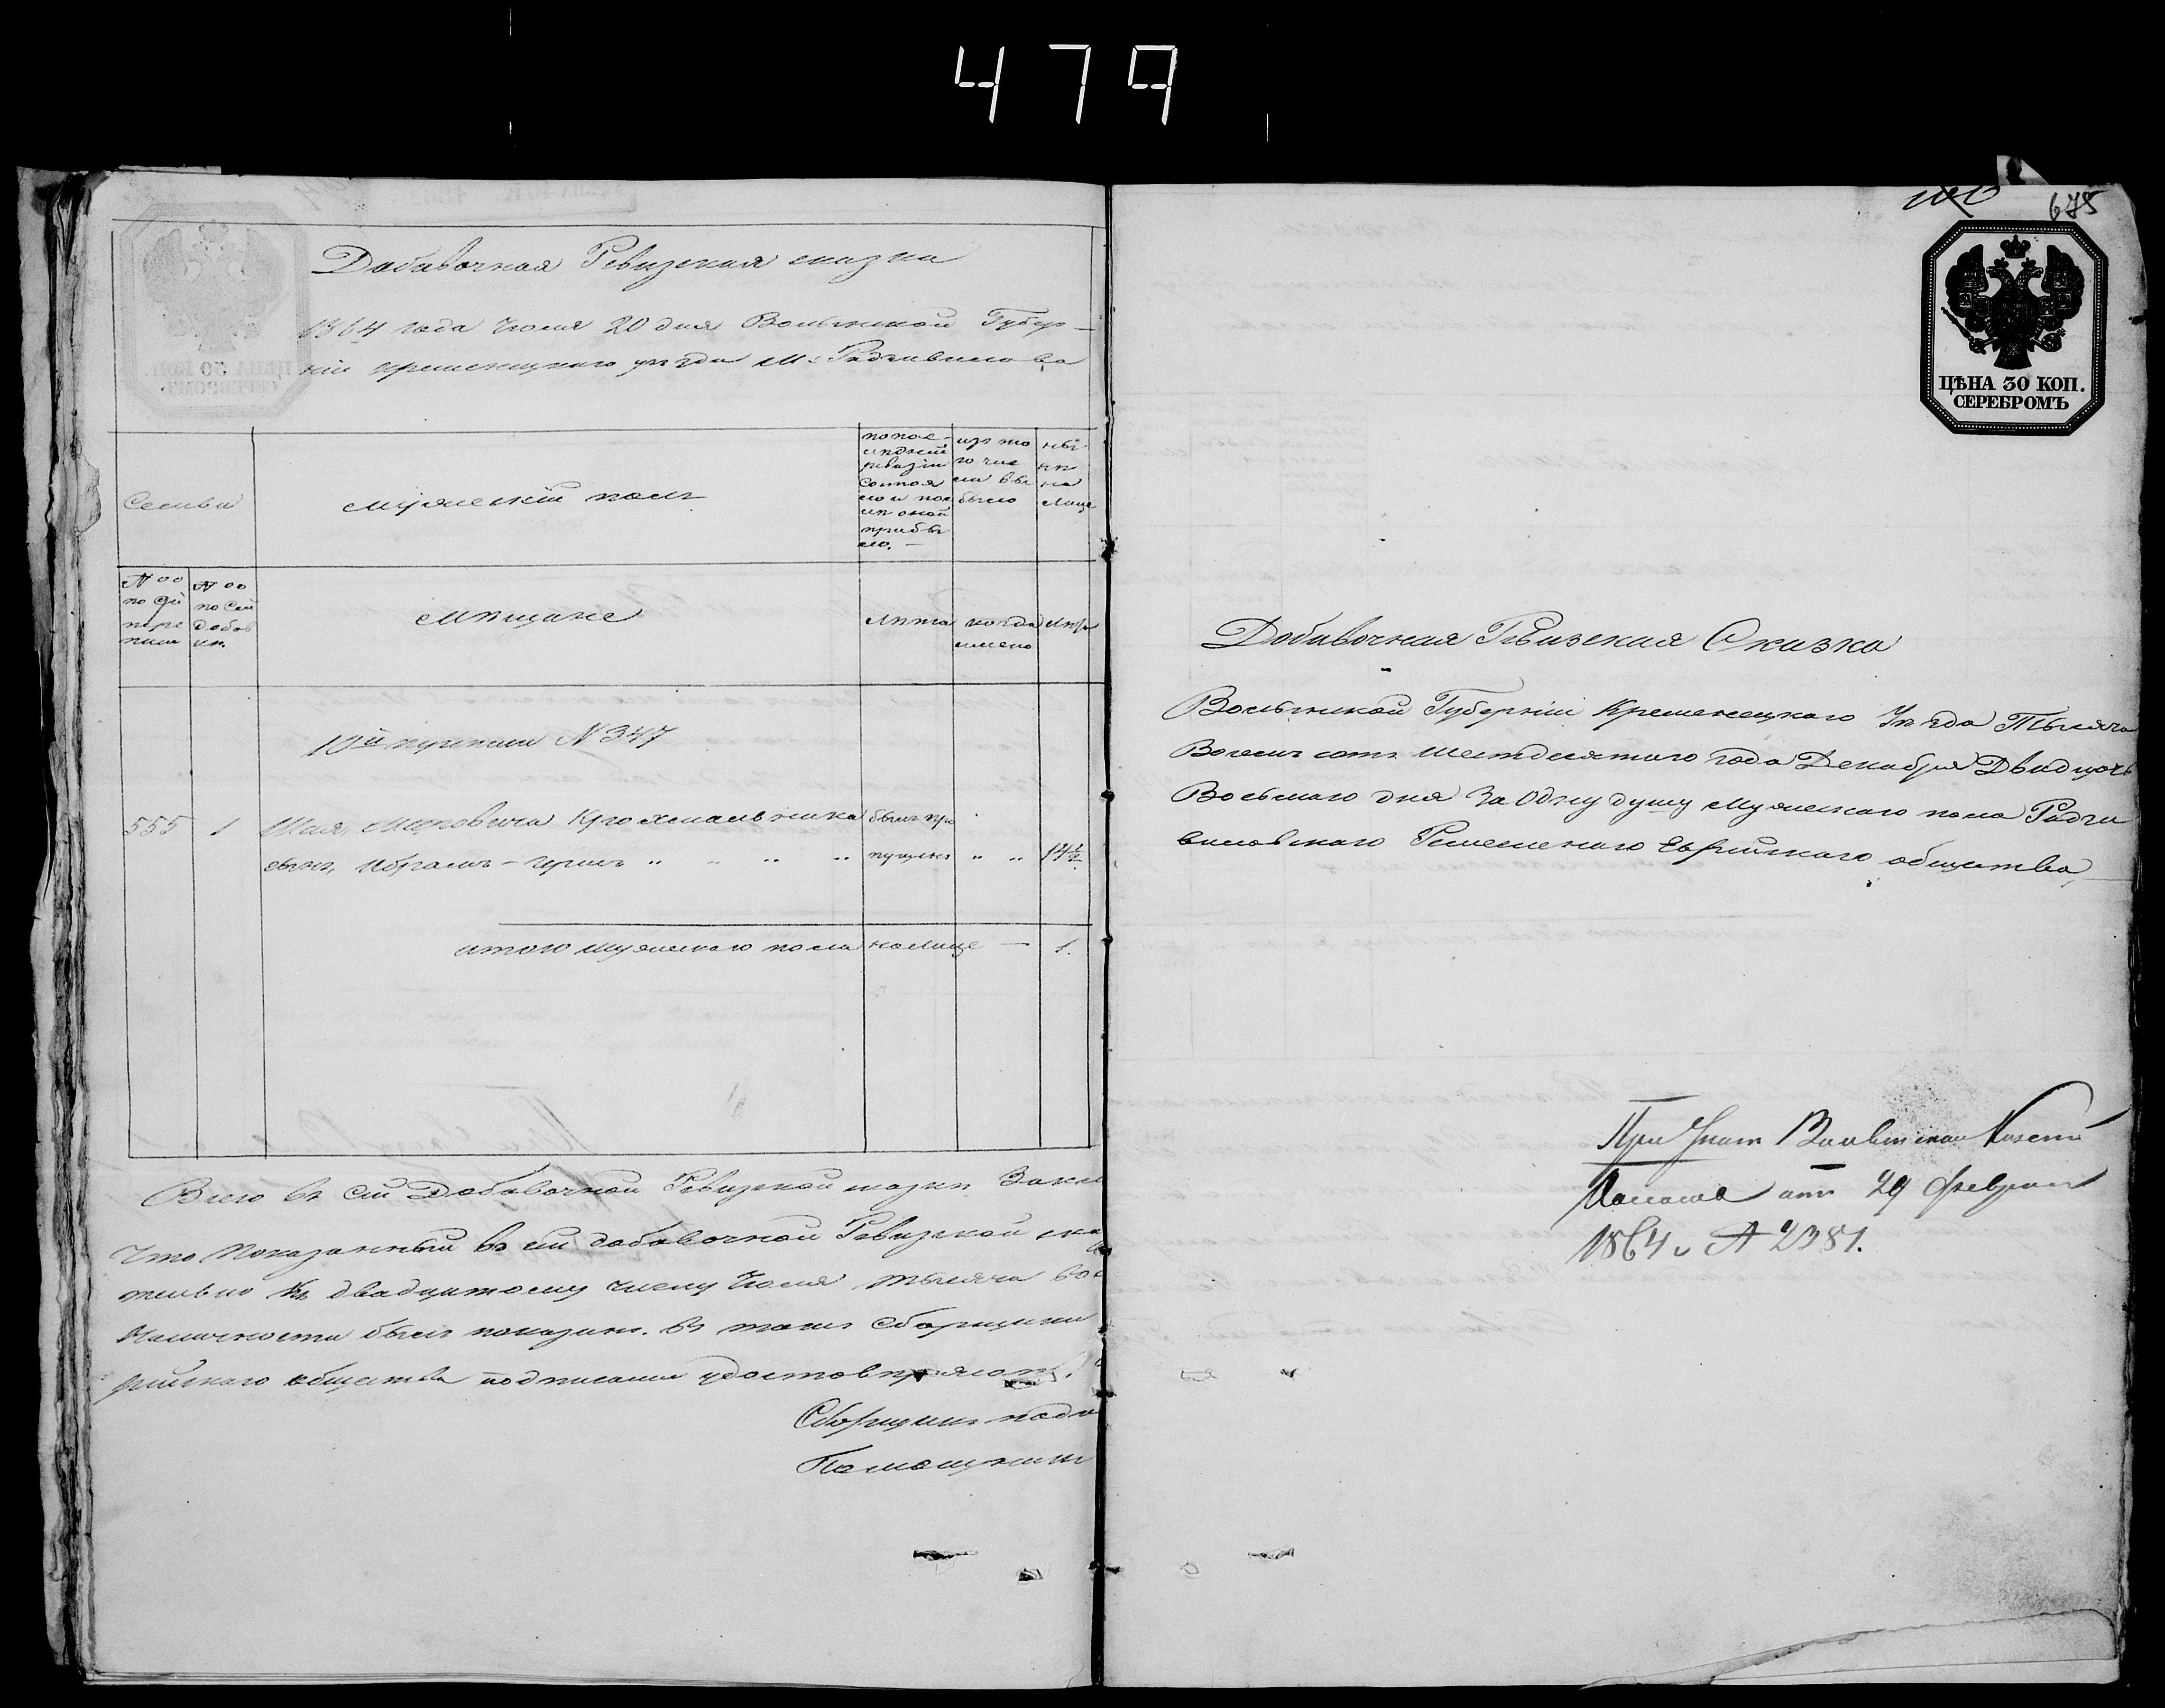 479
Добавочная Ревизская сказка
1864 года Июля 20 дня Волынской Губер-
ніи кременецкаго уезда м: Радзивилова
Семьи
мужескій полъ
по пос-
ледней
ревизіи
состоя
ло и пос
ле оной
прибы
ло. —
изъ то
го чис
ла вы
было
ны-
не
на
лице
№оо
по 9й
пере
писи
№оо
по сей
добав
ке.
мещане
Лета
когда
имено
Лета
10й нумерации №347
555 1 Шая Марковича Крохмальника былъ про
сынъ, Абрамъ-Герш " " " " пущенъ " " 14½
итого мужескаго пола налице — 1.
Всего въ сей Добавочной Ревизской сказке
Что Показанный въ сей добавочной Ревизской ска
тельно къ двадцатому числу Июля тысяча вос
Наличности былъ показанъ. въ томъ Сборщики
рейскаго общества подписами удостоверяютъ.
Сборщикъ пода
Помощникъ
675
ЦѢНА 30 КОП.
СЕРЕБРОМЪ
Добавочная Ревизская Сказка
Волынской Губерніи Кременецкаго Уезда Тысяча
Восемь сотъ шестдесятаго года Декабря Двадцать
Восьмаго дня За Одну душу мужескаго пола Радзи
виловскаго Ремесленаго Еврейскаго общества
При Указе Волынской Казенной
Палаты отъ 29 февраля
1864 г № 2381.